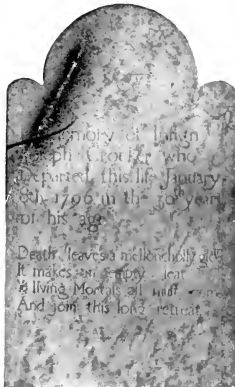 emory of Ensign
seph Crocker who
departed this life January
6th 1796 in th 30th year
of his age
Death leaves a melloncholly
It makes an empty seat
& living Mortals all must
And join this long retreat